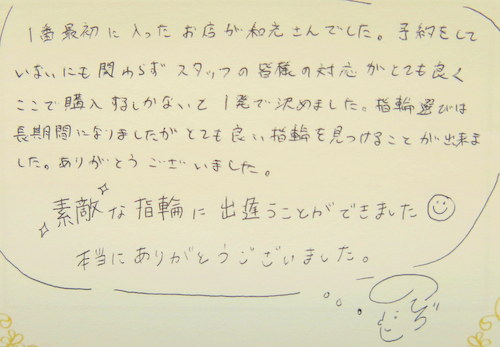 1番最初に入ったお店が和光さんでした。予約をして
いないにも関わらずスタッフの皆様の対応がとても良く
ここで購入するしかないと1発で決めました。指輪選びは
長期間になりましたがとても良い指輪を見つけることが出来ま
した。ありがとうございました。
素敵な指輪に出逢うことができました
本当にありがとうございました。